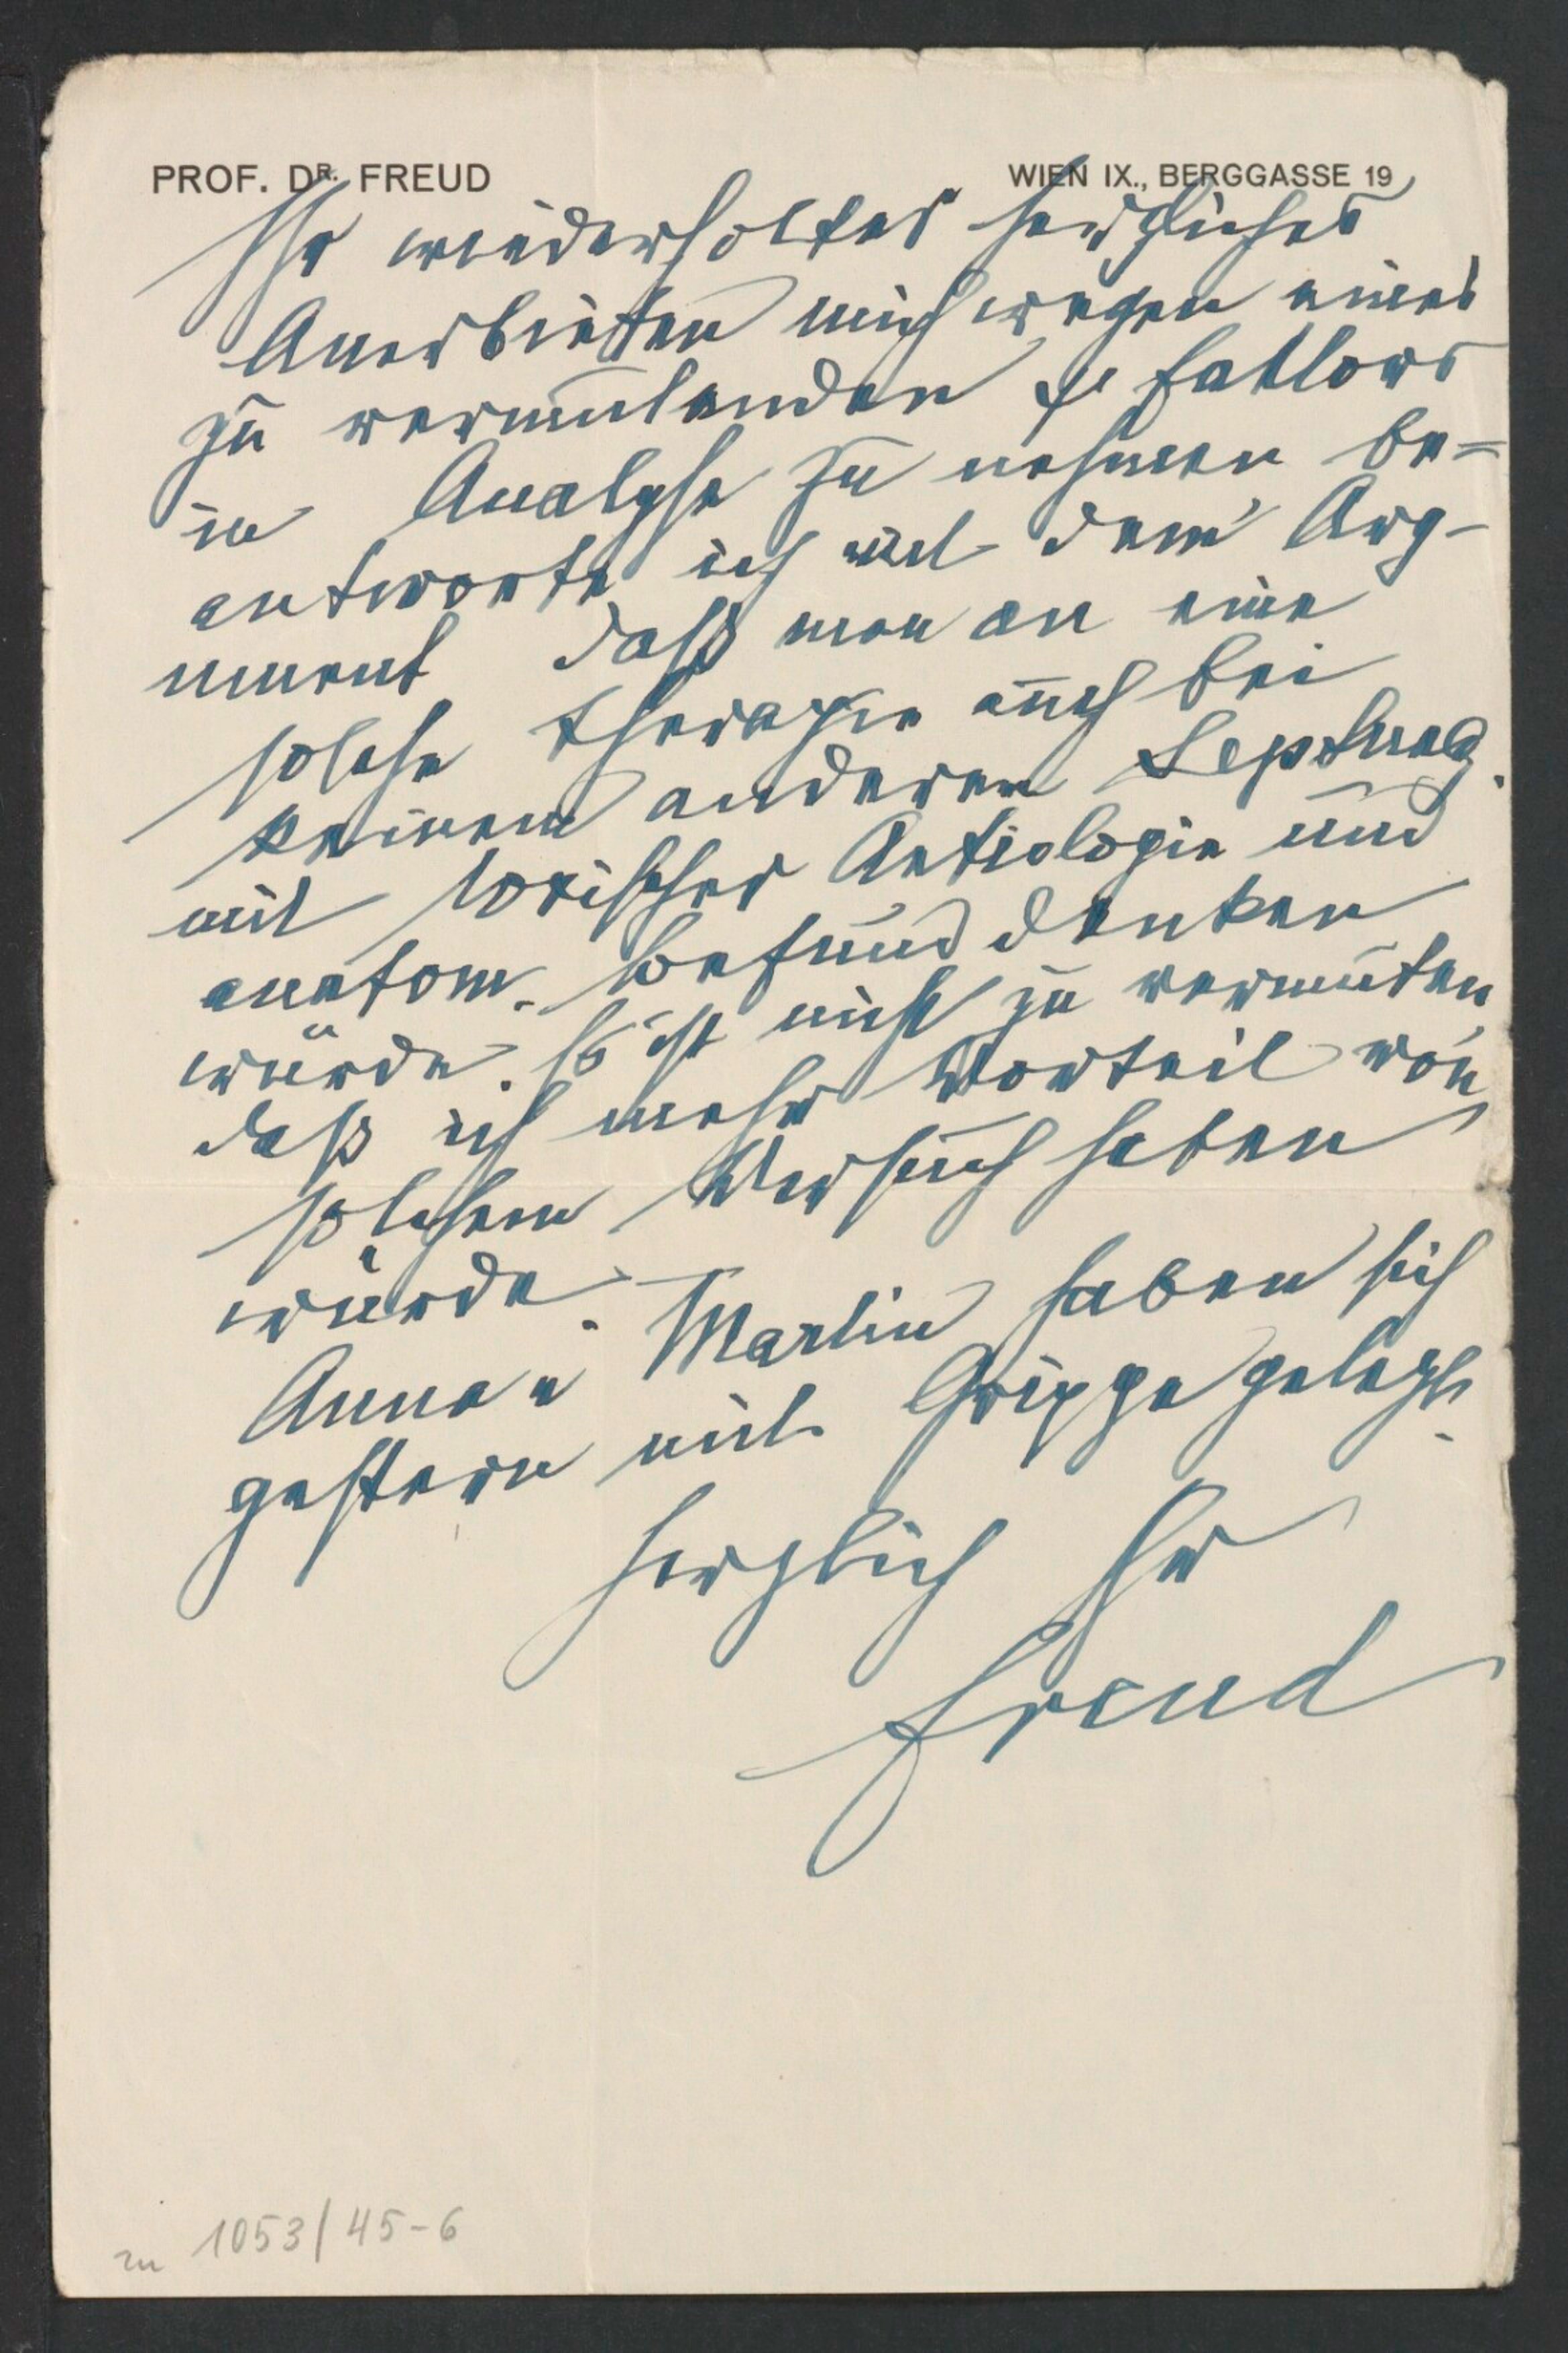 PROF. DR. FREUD WIEN IX., BERGGASSE 19
Ihr wiederholtes herzliches
Anerbieten mich wegen eines
zu vermutenden ψ Faktors
in Analyse zu nehmen be=
antworte ich mit dem Arg-
ument daß man an eine
solche Therapie auch bei
keinem anderen
mit toxischer Aetiologie und
anatom. Befund denken
würde. Es ist nicht zu vermuten
daß ich mehr Vorteil von
solchem Versuch haben
würde.
Anna u Martin haben sich
gestern mit Grippe gelegt.
Herzlich Ihr
Freud
zu 1053/45-6